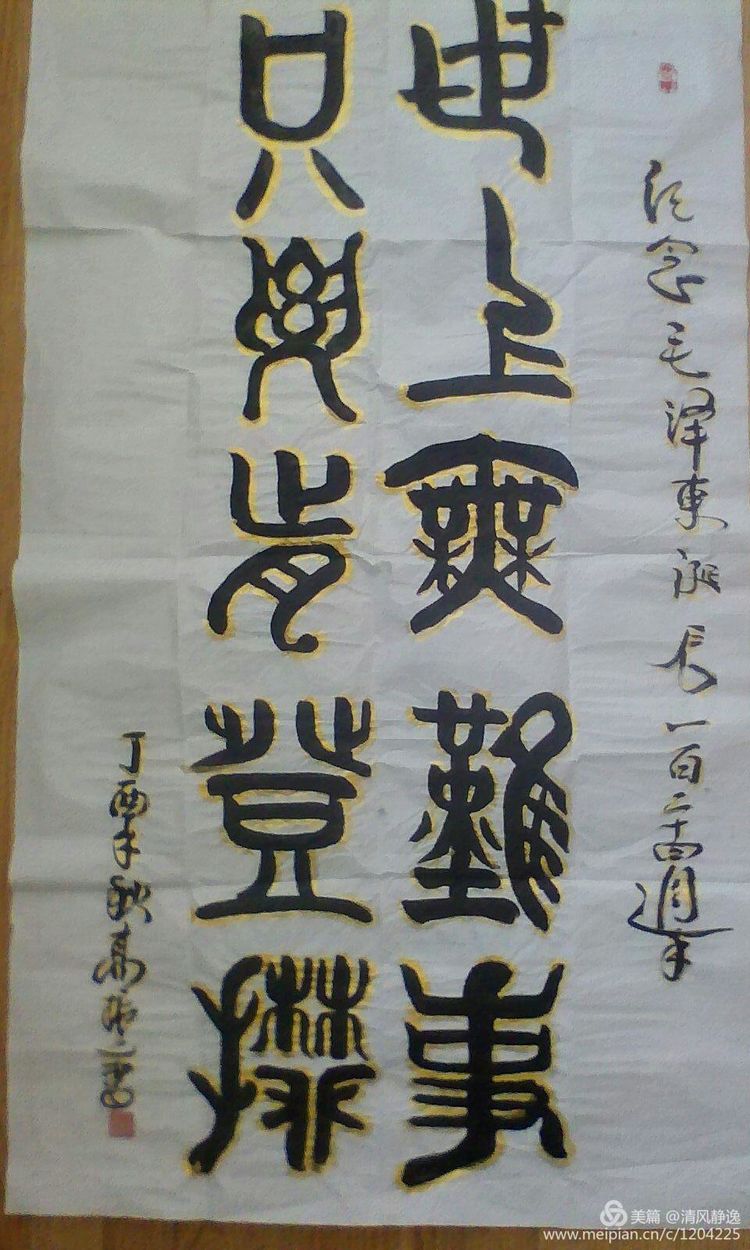 纪念毛泽东诞辰一百二十四週年
世上無難事
只要肯登攀
丁酉年秋高
美篇 @清风静逸
www.meipian.cn/c/1204225